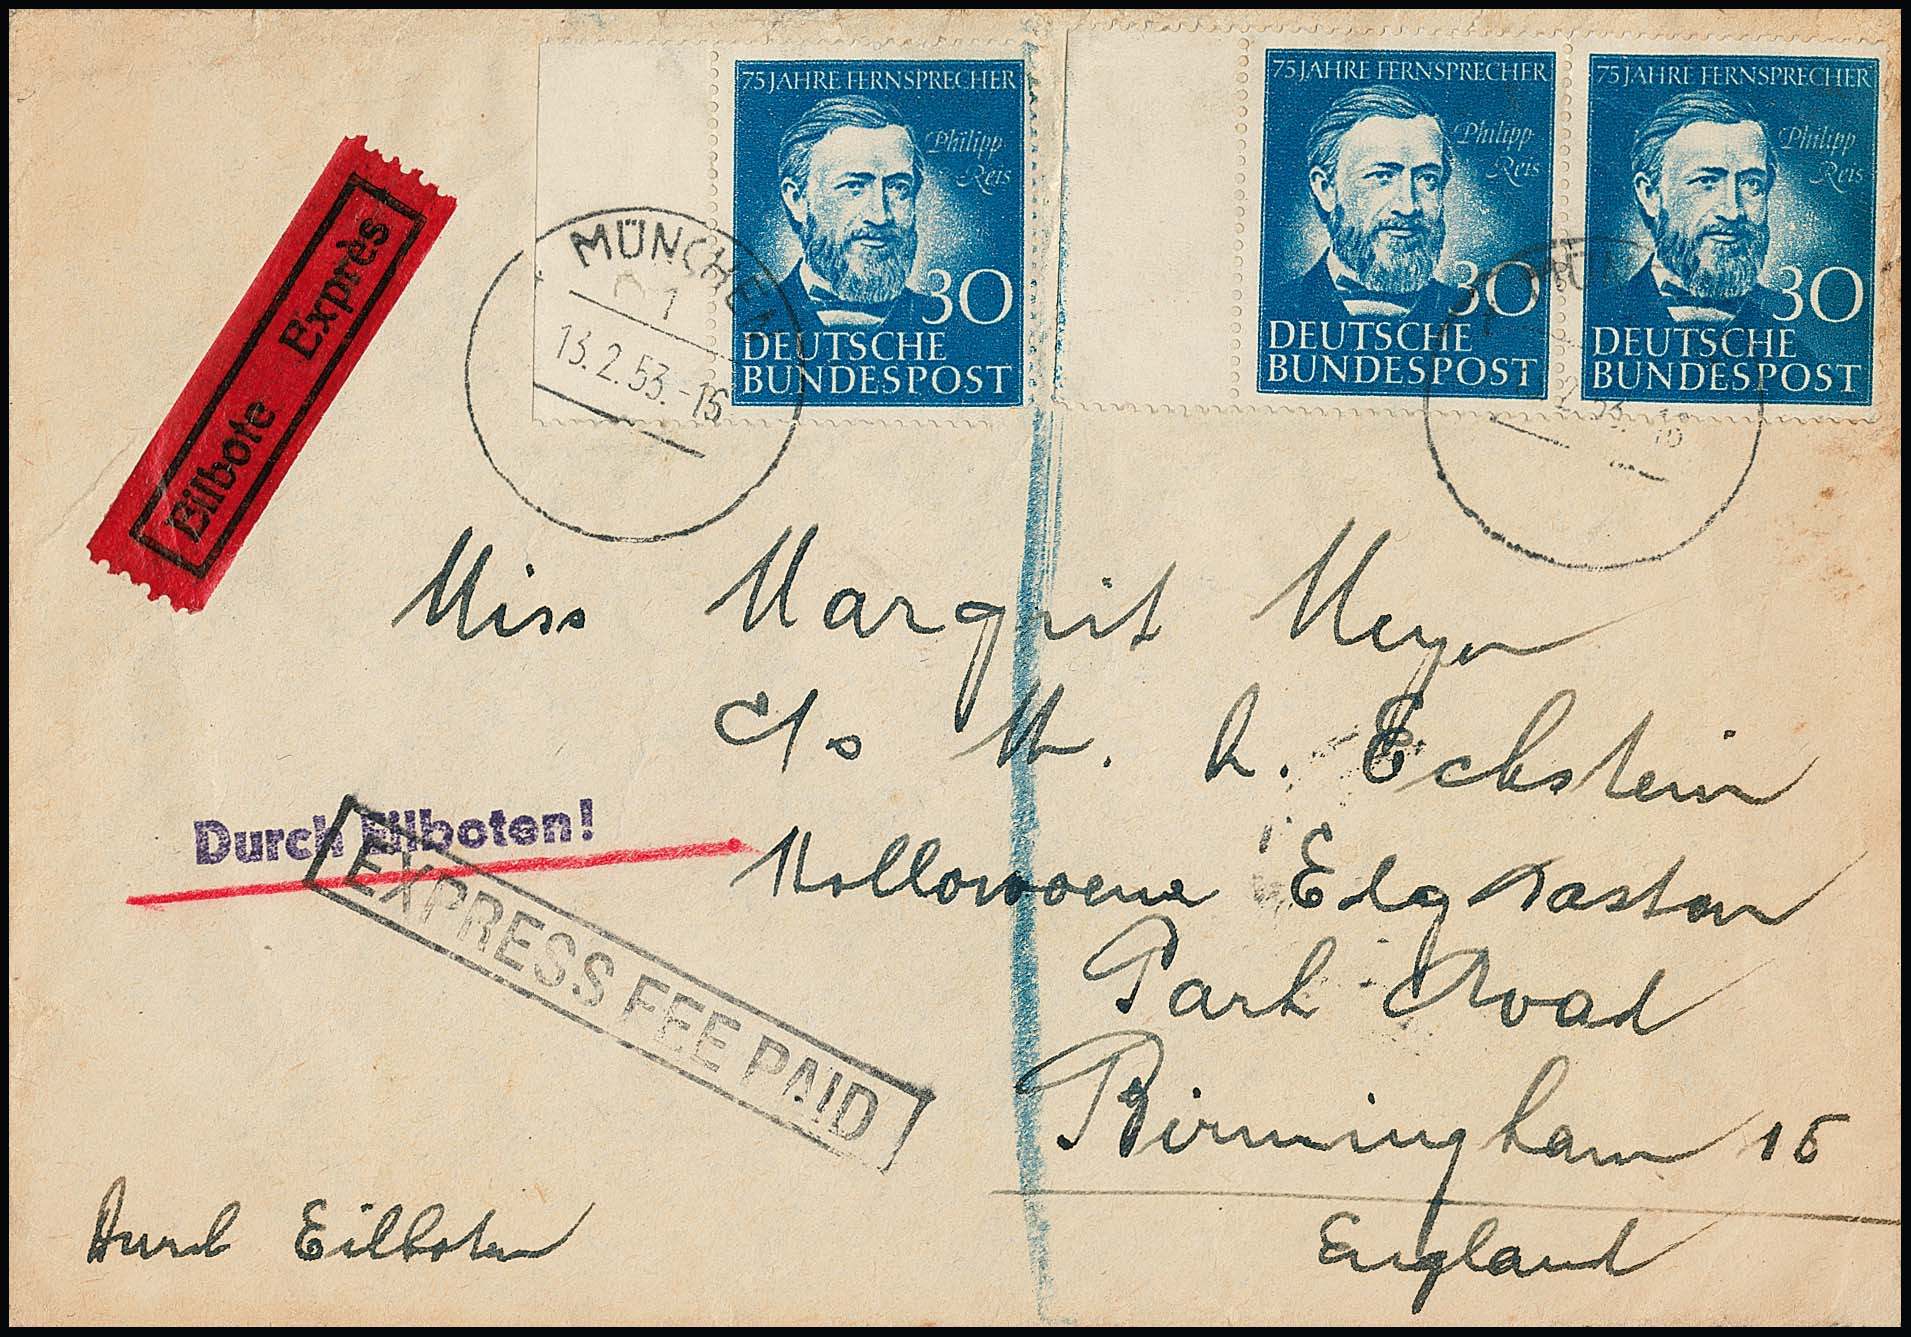 75 JAHRE FERNSPRECHER
Philipp
Reis
30
DEUTSCHE
BUNDESPOST
75 JAHRE FERNSPRECHER
Philipp
Reis
30
DEUTSCHE
BUNDESPOST
75 JAHRE FERNSPRECHER
Philipp
Reis
30
DEUTSCHE
BUNDESPOST
MÜNCHEN
1
13.2.53.-16
MÜN
2.53.
Eilbote Exprès
Miss Margrit Meyer
c/o M. L. Eckstein
Durch Eilboten!
Elgbaston
EXPRESS FEE PAID
Park Road
Birmingham 15
Durch Eilboten
England